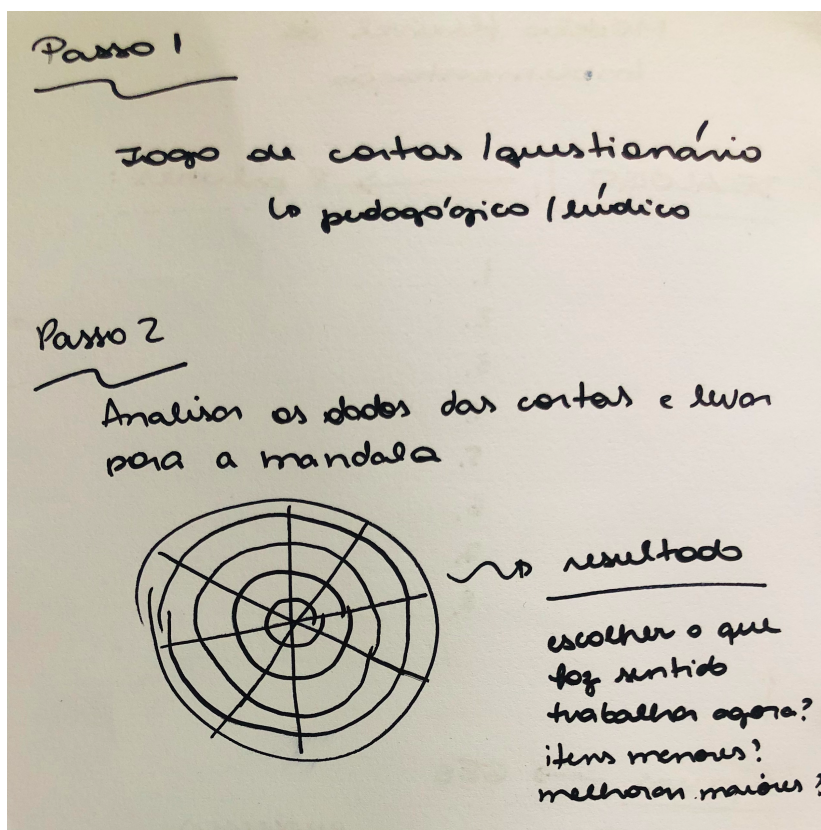 Passo 1
Jogo de cartas / questionário
↳ pedagógico / lúdico
Passo 2
Analisar os dados das cartas e levar
para a mandala
resultado
escolher o que
faz sentido
trabalhar agora?
itens menores?
melhorar maiores?